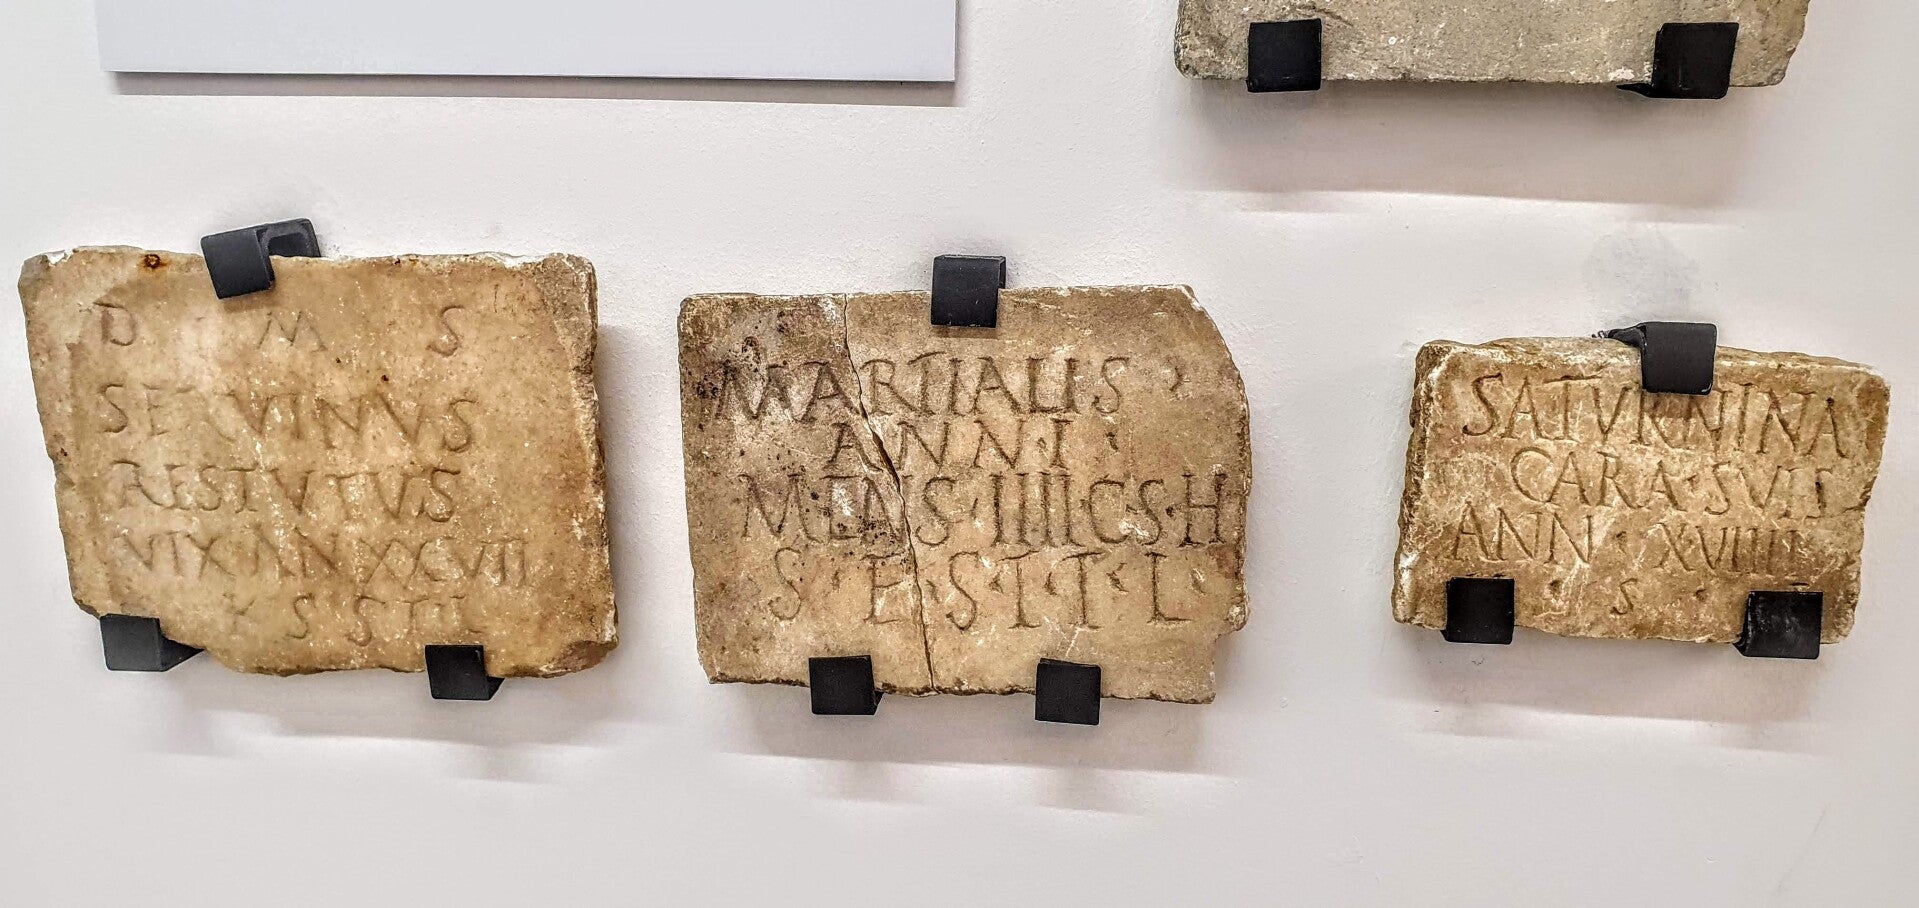 D M S
SERVINVS
RESTVTVS
VIX ANN XXCVII
H S S T T L
MARTIALIS
ANN·I·
MENS·IIII C·S·H
S·E·S·T·T·L·
SATVRNINA
CARA·SVIS
ANN·XVIIII
S